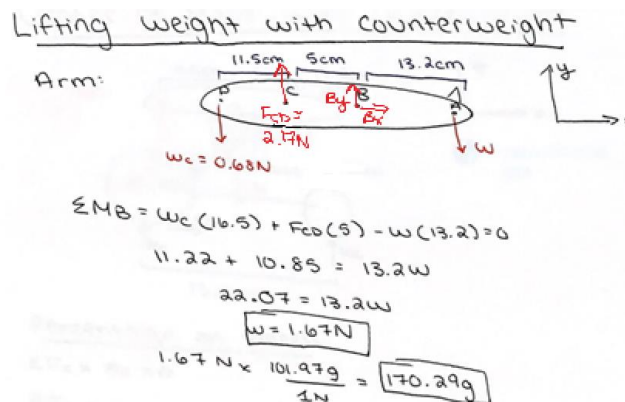 Lifting weight with counterweight
11.5cm 5cm 13.2cm
Arm:
y
D C By B A
FCD= Bx
2.17N
W
Wc = 0.68N
ΣMB = Wc(16.5) + FCD(5) - W(13.2)=0
11.22 + 10.85 = 13.2W
22.07 = 13.2W
W = 1.67N
1.67 N × 101.97g / 1N = 170.29g